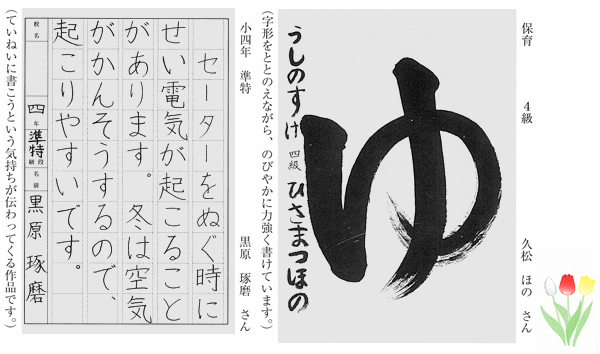 保育 4級 久松 ほの さん
ゆ
うしのすけ 四級 ひさまつほの
(字形をととのえながら、のびやかに力強く書けています。)
小四年 準特 黒原 琢磨 さん
セーターをぬぐ時に
せい電気が起こること
があります。冬は空気
がかんそうするので、
起こりやすいです。
校名 四年 準特 段級 名前 黒原 琢磨
(ていねいに書こうという気持ちが伝わってくる作品です。)